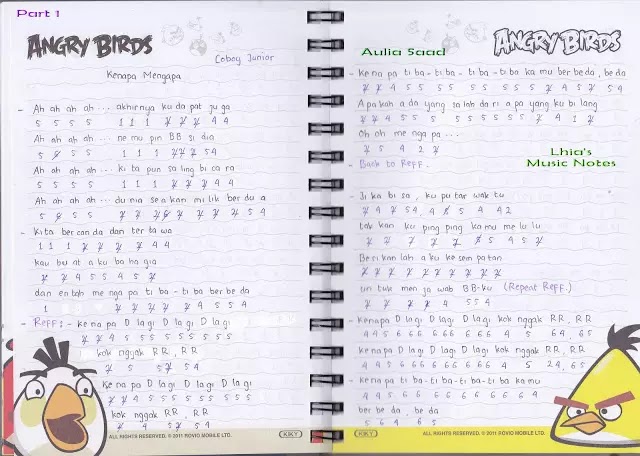 Part 1
ANGRY BIRDS
Coboy Junior
Kenapa Mengapa
- Ah ah ah ah ... akhirnya ku da pat ju ga
5 5 5 5 1 1 1 7 7 7 4 4
Ah ah ah ah ... ne mu pin BB si dia
5 5 5 1 1 1 7 7 7 5 4
Ah ah ah ah ... ki ta pun sa ling bi ca ra
5 5 5 5 1 1 1 7 7 7 4 4
Ah ah ah ah ... du nia se a kan mi lik ber du a
- Kita ber can da dan ter ta wa
1 1 1 7 7 7 7 4 4
kau bu at a ku ba ha gia
7 7 4 5 5 4 5 7
dan en tah me nga pa ti ba - ti ba ber be da
- Reff : - ke na pa D lagi D lagi D lagi
7 7 4 5 5 5 5 5 5 5 5
kok nggak RR , RR
7 5 5 7 5 4
Ke na pa D lagi D lagi D lagi
7 7 4 5 5 5 5 5 5 5 5
kok nggak RR , RR
7 4 5 7 5 4
ALL RIGHTS RESERVED. © 2011 ROVIO MOBILE LTD.
KIKY
Aulia Saad
ANGRY BIRDS
- Ke na pa ti ba - ti ba - ti ba - ti ba ka mu ber be da , be da
A pa kah a da yang sa lah da ri a pa yang ku bi lang
Oh oh me nga pa ...
7 5 4 2 7
- Back to Reff.
Lhia's
Music Notes
- Ji ka bi sa , ku pu tar wak tu
tak kan ku ping ping ka mu me lu lu
Be ri kan lah a ku ke sem pa tan
7 7 7 7 7 7 7 7 7 7
un tuk men ja wab BB-ku (Repeat Reff.)
7 7 7 7 4 5 5 4
- Kenapa D lagi D lagi D lagi kok nggak RR , RR
4 4 5 6 6 6 6 6 6 6 6 4 5 6 4 , 6 5
Kenapa D lagi D lagi D lagi kok nggak RR , RR
4 4 5 6 6 6 6 6 6 6 6 4 5 2 4 , 6 5
- Ke na pa ti ba - ti ba - ti ba - ti ba ka mu
4 4 5 6 6 6 6 6 6 6 6 6 4
ber be da , be da
5 6 4 6 5
KIKY
ALL RIGHTS RESERVED. © 2011 ROVIO MOBILE LTD.